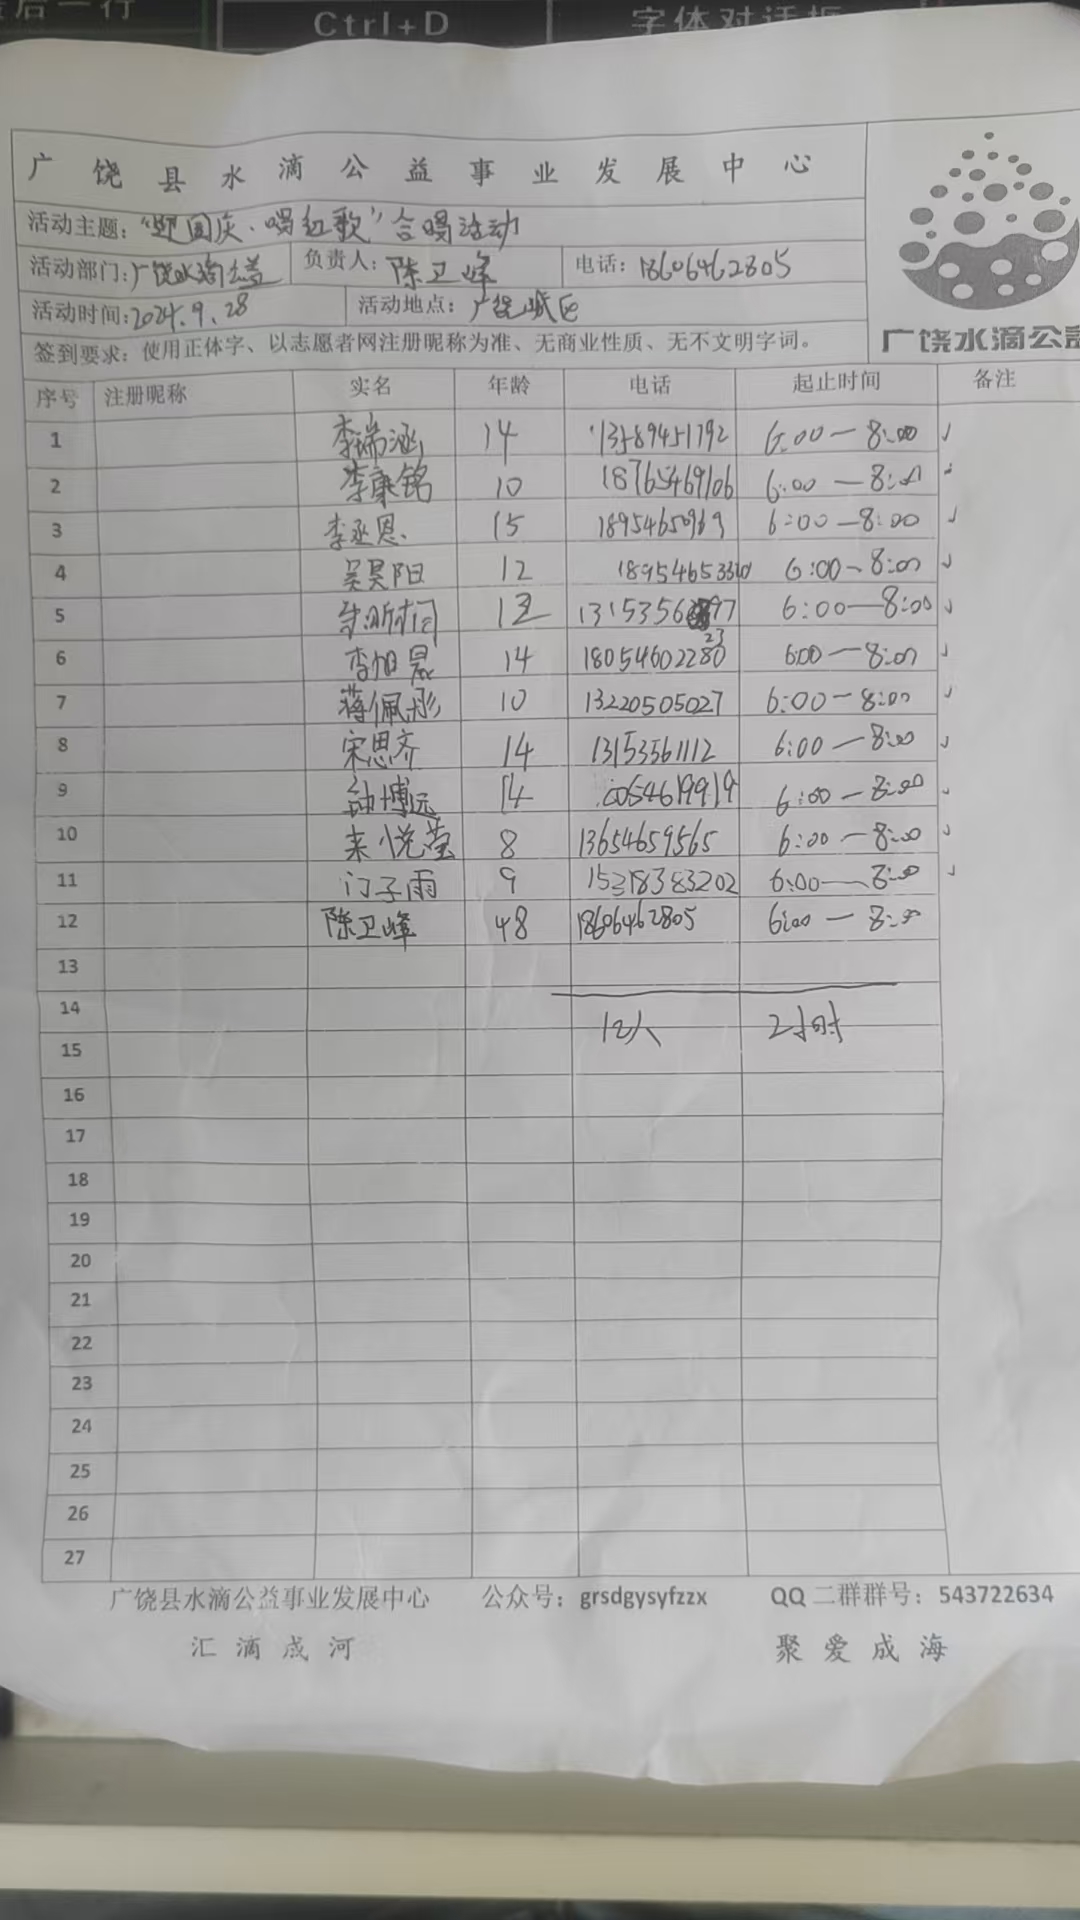 后一行
Ctrl+D
字体对话框
广饶县水滴公益事业发展中心
活动主题："迎国庆·唱红歌"合唱活动
活动部门：广饶水滴公益 负责人：陈卫峰 电话：18606462805
活动时间：2024.9.28 活动地点：广饶城区
签到要求：使用正体字、以志愿者网注册昵称为准、无商业性质、无不文明字词。
广饶水滴公益
序号 注册昵称 实名 年龄 电话 起止时间 备注
1 李瑞涵 14 13589451792 6:00—8:00 √
2 李秉铭 10 18765469106 6:00—8:00
3 李丞恩 15 18954650969 6:00—8:00 √
4 吴昊阳 12 6:00-8:00 √
5 6:00—8:00 √
6 李旭晨 14 6:00—8:00 √
7 蒋佩彤 10 13220505027 6:00—8:00 √
8 宋思齐 14 13153561112 6:00—8:00 √
9 博远 14 6:00—8:00
10 来悦莹 8 13654659565 6:00—8:00 √
11 门子雨 9 15318383202 6:00—8:00 √
12 陈卫峰 48 18606462805 6:00—8:00
13
14
12人 2小时
15
16
17
18
19
20
21
22
23
24
25
26
27
广饶县水滴公益事业发展中心 公众号：grsdgysyfzzx QQ二群群号：543722634
汇滴成河 聚爱成海